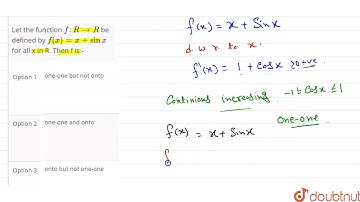 Let the function f: R → R be
defined by f(x) = x + sin x
for all x in R. Then f is -
Option 1 one-one but not onto
Option 2 one-one and onto
Option 3 onto but not one-one
f(x) = x + Sinx
d. w. r to x.
f'(x) = 1 + Cosx ≥0 +ve.
Continious increasing. -1 ≤ Cosx ≤ 1
One-one.
f(x) = x + Sinx
doubtnut